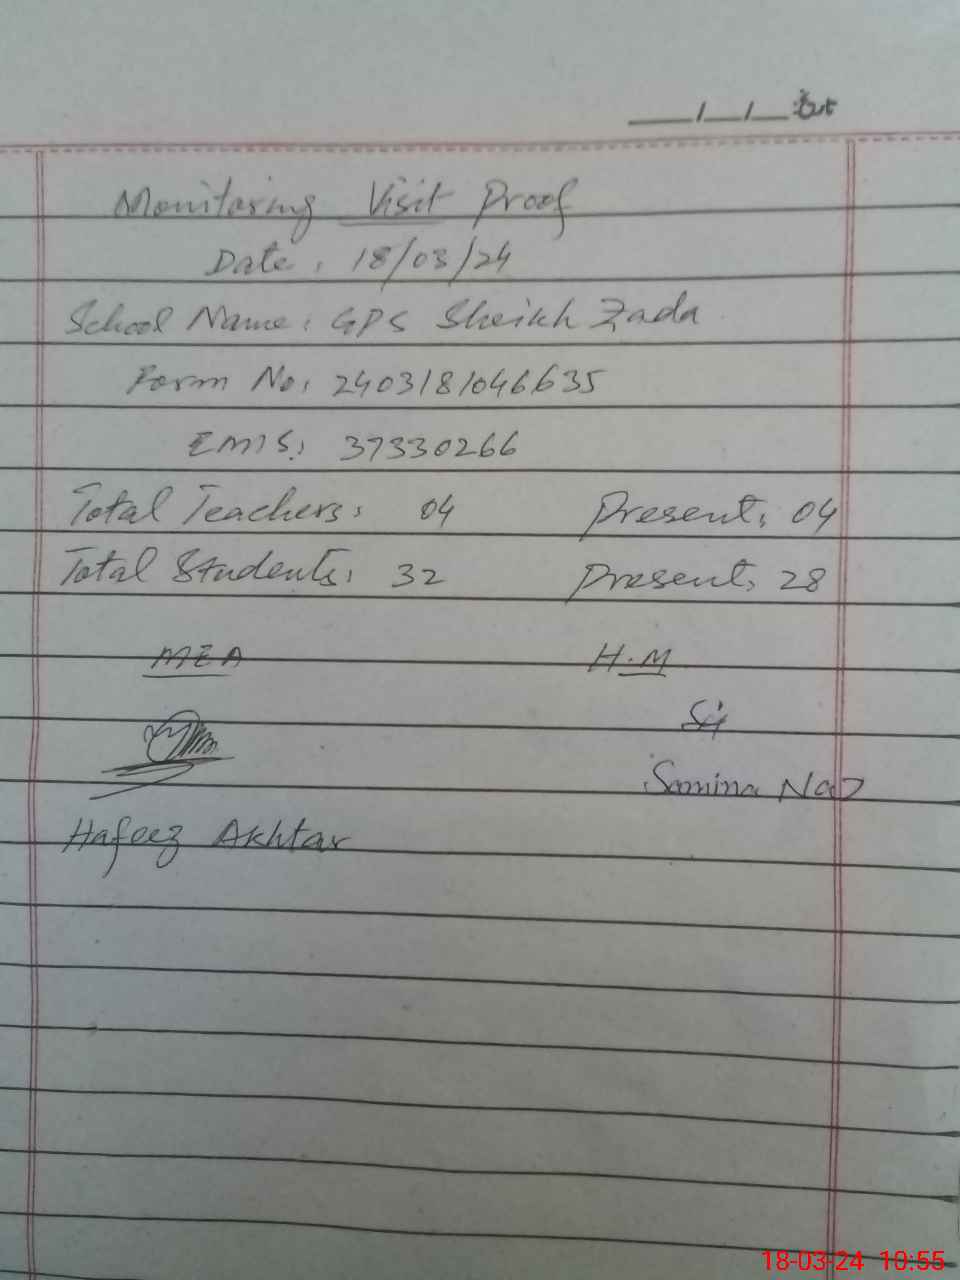 __/__/__ تاریخ
Monitoring Visit Proof
Date: 18/03/24
School Name: GPS Sheikh Zada
Form No: 2403181046635
EMIS: 37330266
Total Teachers: 04 Present: 04
Total Students: 32 Present: 28
MEA H.M
Samina Naz
Hafeez Akhtar
18-03-24 10:55